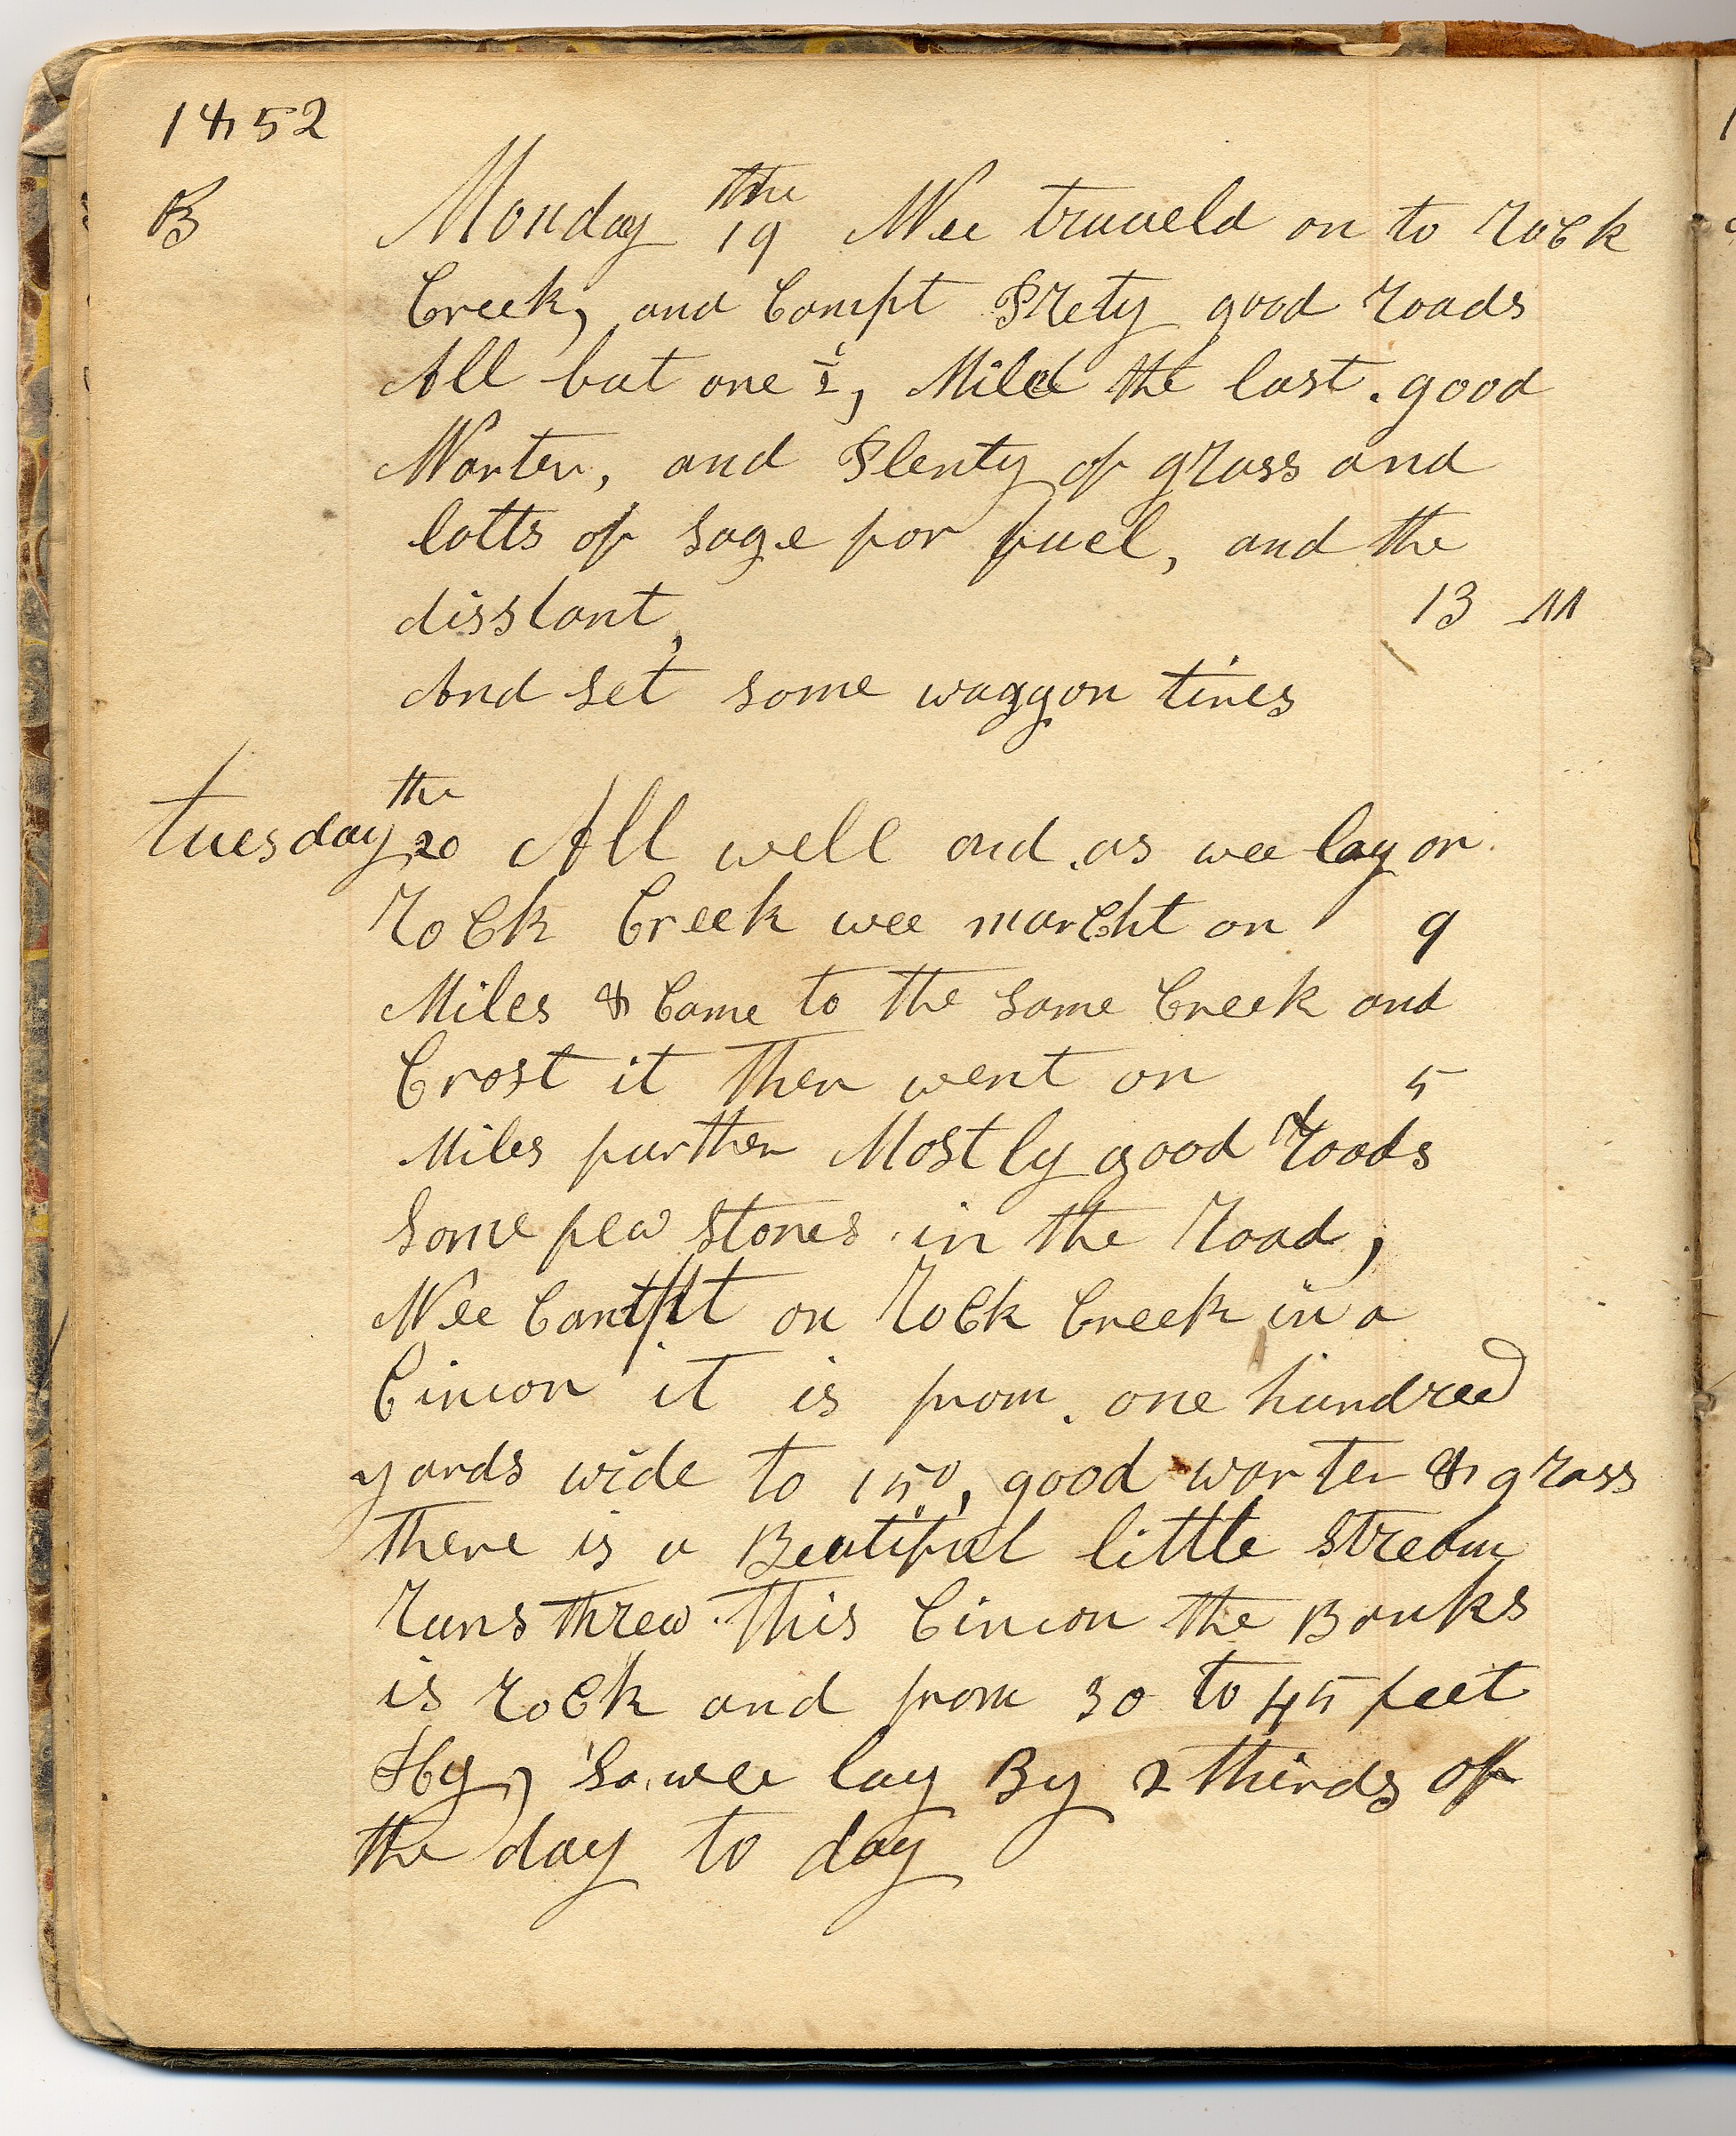 1852
B
Monday the 19 Wee traveld on to Rock
Creek, and Campt Prety good roads
All but one ½, Mile the last. good
Warter, and Plenty of grass and
lotts of Sage for fuel, and the
disstant, 13 M
And set some waggon tires
tuesday the 20 All well and as wee lay on
Rock Creek wee marcht on 9
Miles & Came to the Same Creek and
Crost it then went on 5
Miles further Mostly good Roads
Some few Stones in the Road,
Wee Campt on Rock Creek in a
Cinion it is from one hundred
yards wide to 150, good warter & grass
there is a Beatiful little Stream
Runs threw this Cinion the Banks
is Rock and from 30 to 45 feet
Hy, So wee lay By 2 thirds of
the day to day